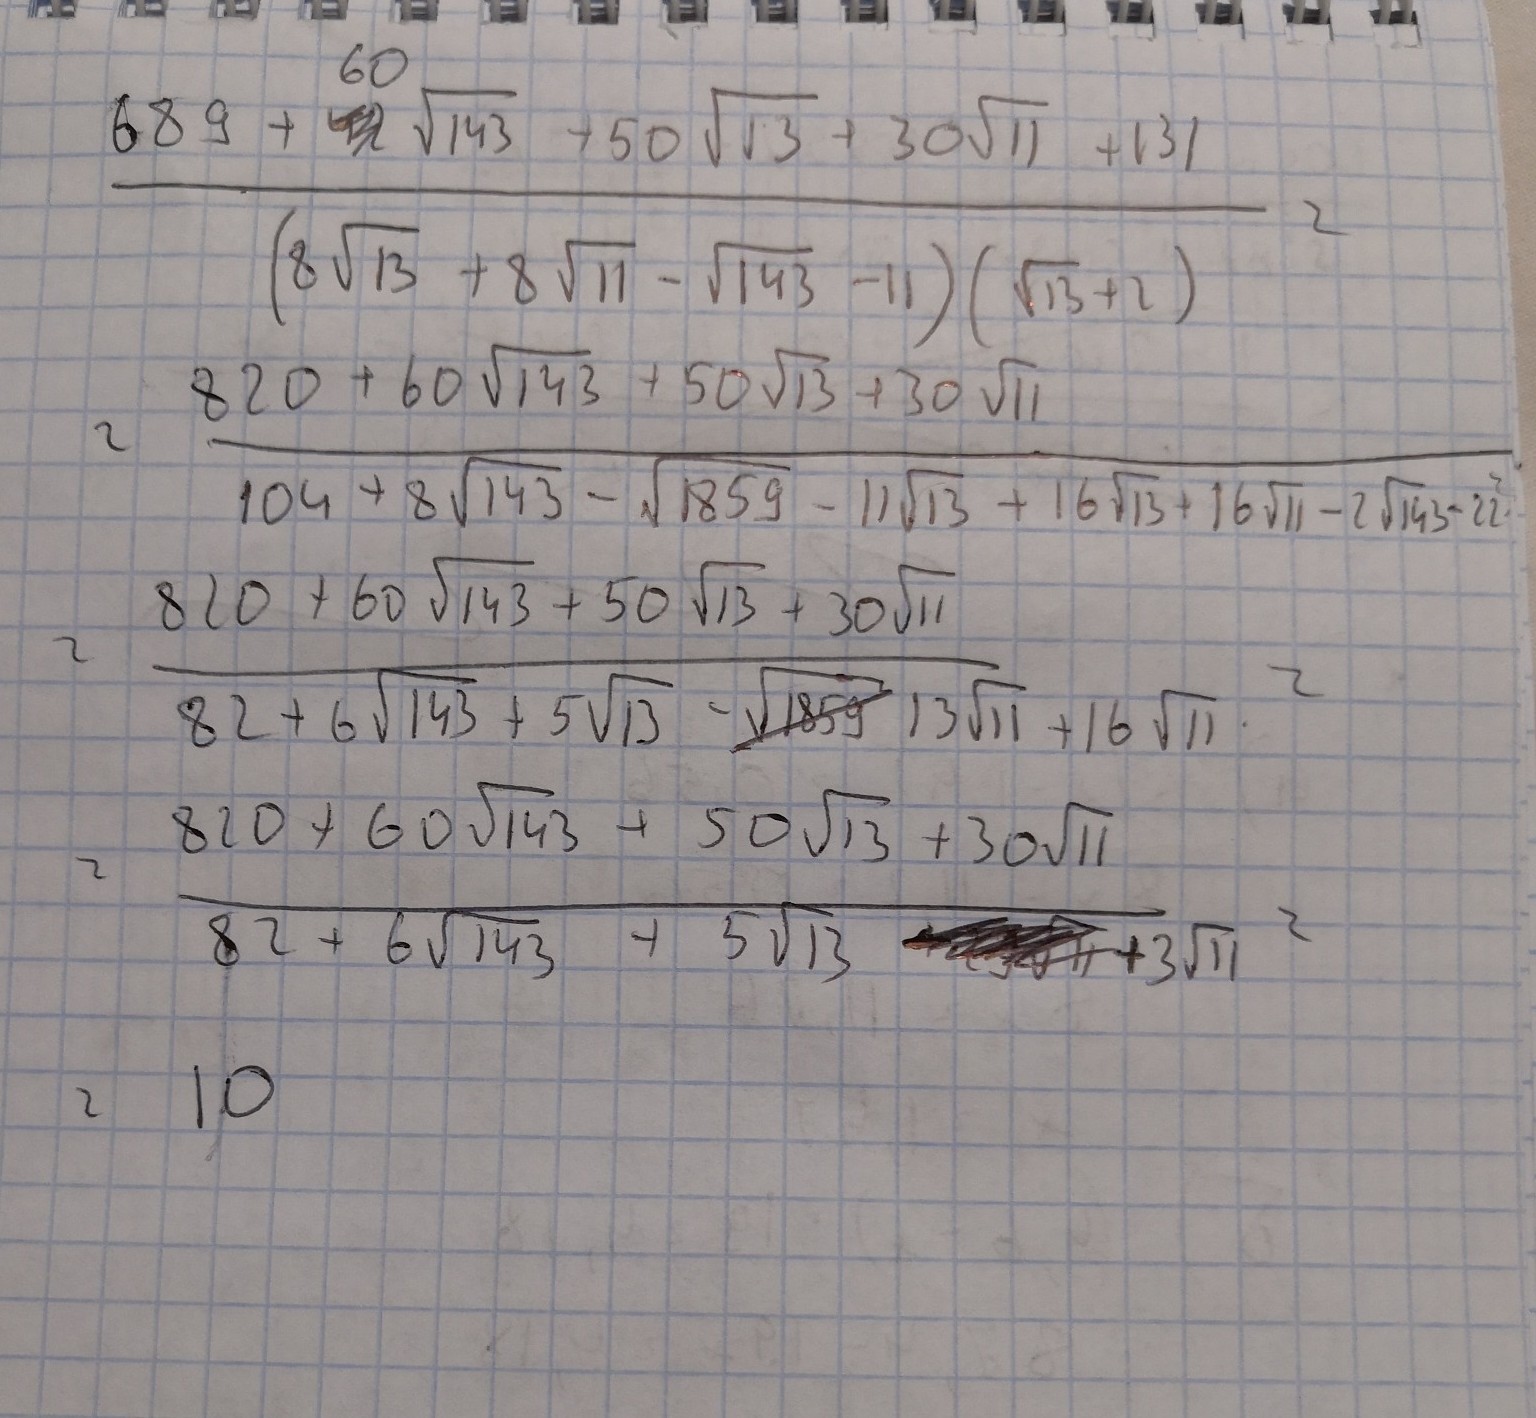 60
689 + √143 + 50√13 + 30√11 + 131
=
(8√13 + 8√11 - √143 - 11)(√13 + 2)
820 + 60√143 + 50√13 + 30√11
=
104 + 8√143 - √1859 - 11√13 + 16√13 + 16√11 - 2√143 - 22 =
820 + 60√143 + 50√13 + 30√11
= =
82 + 6√143 + 5√13 - √1859 13√11 + 16√11
820 + 60√143 + 50√13 + 30√11
=
82 + 6√143 + 5√13 + 3√11 =
= 10